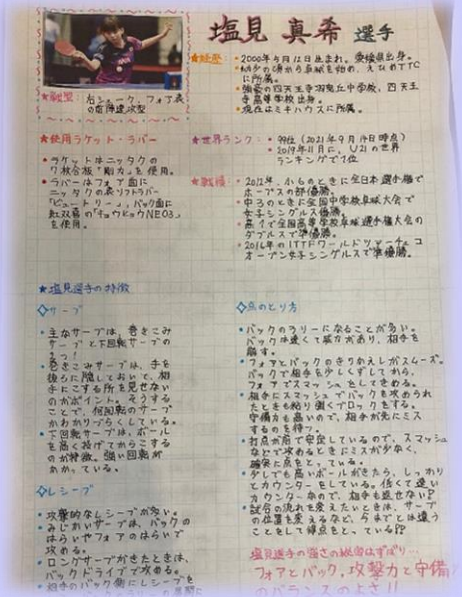 塩見 真希 選手
★経歴：・2000年5月12日生まれ。愛媛県出身。
に所属。
・強豪の四天王寺羽曳丘中学校、四天王
寺高等学校出身。
・現在はミキハウスに所属。
★戦型：右シェーク、フォア表
の前陣速攻型
★使用ラケット・ラバー
・ラケットはニッタクの
7枚合板「剛力」を使用。
・ラバーはフォア面に
ニッタクの表ソフトラバー
バック面に
紅双喜の「キョウヒョウNEO3」
を使用。
★世界ランク：・99位（2021年9月14日時点）
・2019年11月に、U21の世界
ランキングで1位
★戦績：
ホープスの部優勝。
・中3のときに全国中学校卓球大会で
女子シングルス優勝。
・高1で全国高等学校卓球選手権大会の
ダブルスで準優勝。
・2016年のITTFワールドツアーチェコ
オープン女子シングルスで準優勝。
★塩見選手の特徴
◇サーブ
・主なサーブは、巻きこみ
サーブと下回転サーブの
2つ！
・巻きこみサーブは、手を
後ろに隠しておいて、相
手にこする所を見せない
のがポイント。そうする
ことで、何回転のサーブ
かわかりづらくしている。
・下回転サーブは、ボール
を高く投げてからこする
のが特徴。強い回転が
かかっている。
◇レシーブ
・攻撃的なレシーブが多い。
・みじかいサーブは、バックの
はらいやフォアのはらいで
攻める。
・ロングサーブがきたときは、
バックドライブで攻める。
・相手のバック側にレシーブを
◇点のとり方
・バックのラリーになることが多い。
バックは速くて威力があり、相手を
崩す。
・フォアとバックのきりかえしがスムーズ。
バックで相手を少しくずしてから、
フォアでスマッシュをしてきめる。
・相手にスマッシュでバックを攻められ
たときも粘り強くブロックをする。
守備力も高いので、相手が先にミス
するのを待つ。
・打点が前で安定しているので、スマッシュ
などで攻めるときにミスが少なく、
確実に点をとっている。
・少しでも高いボールがきたら、しっかり
とカウンターをしている。低くて速い
カウンターなので、相手も返せない!?
・試合の流れを変えたいときは、サーブ
の位置を変えるなど、今までとは違う
ことをして得点をとっている!?
塩見選手の強さの秘密はずばり…
フォアとバック、攻撃力と守備力
のバランスのよさ!!